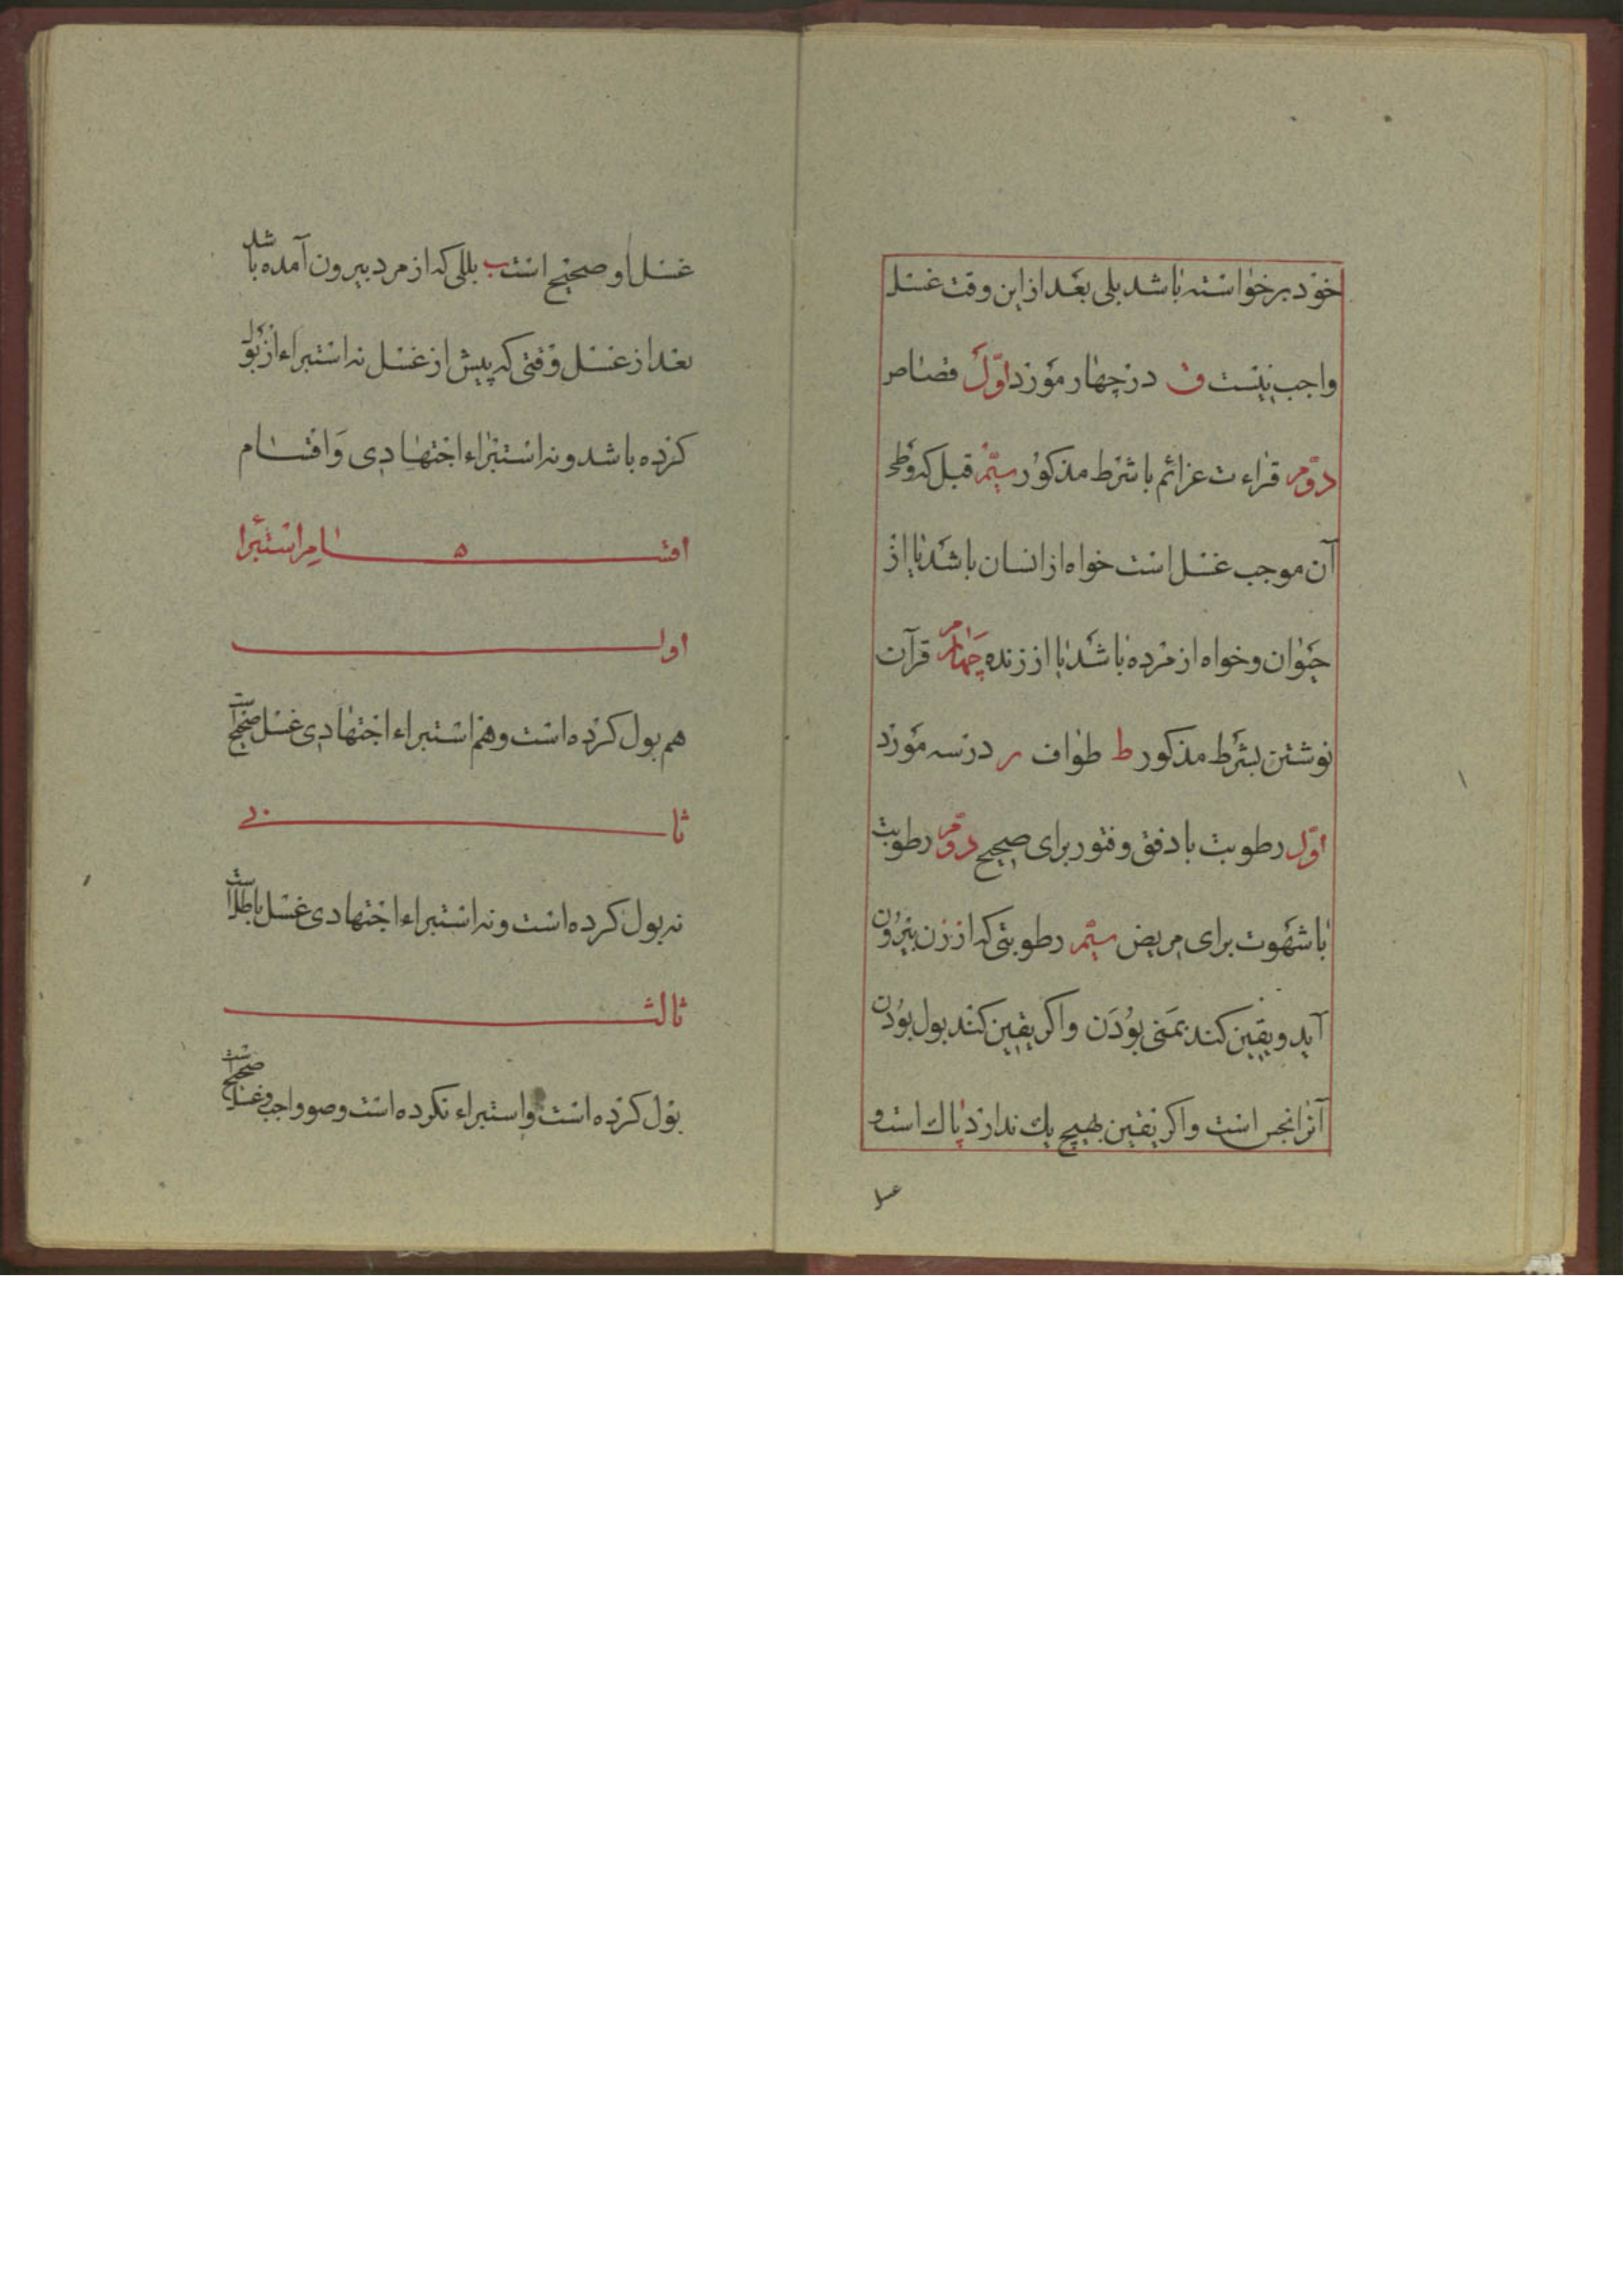 خود برخواسته باشد بلی بعد از این وقت غسل
واجب نیست ف در چهار مورد اوّل قصاص
دوّم قراءت عزائم با شرط مذکور سیّم قبل که وطی
آن موجب غسل است خواه از انسان باشد یا از
حیوان و خواه از مرده باشد یا از زنده چهارم قرآن
نوشتن بشرط مذکور ط طواف ر در سه مورد
اوّل رطوبت با دفق و فتور برای صحیح دوّم رطوبت
با شهوت برای مریض سیّم رطوبتی که از زن بیرون
آید و یقین کند بمَنی بوُدَن و اکر یقین کند بول بوُدن
آنرا نجس است و اکر یقین بهیچ یك ندارد پاك است و
غسل
غسل او صحیح است ب بللی که از مرد بیرون آمده باشد
بعد از غسل وقتی که پیش از غسل نه استبراء از بول
کرده باشد و نه استبراء اجتهادی وَ اقسام
اقسام استبرا ه
اول
هم بول کرده است و هم استبراء اجتهادی غسل صحیح است
ثانی
نه بول کرده است و نه استبراء اجتهادی غسل باطل است
ثالث
بول کرده است و استبراء نکرده است وضو واجب و غسل صحیح است